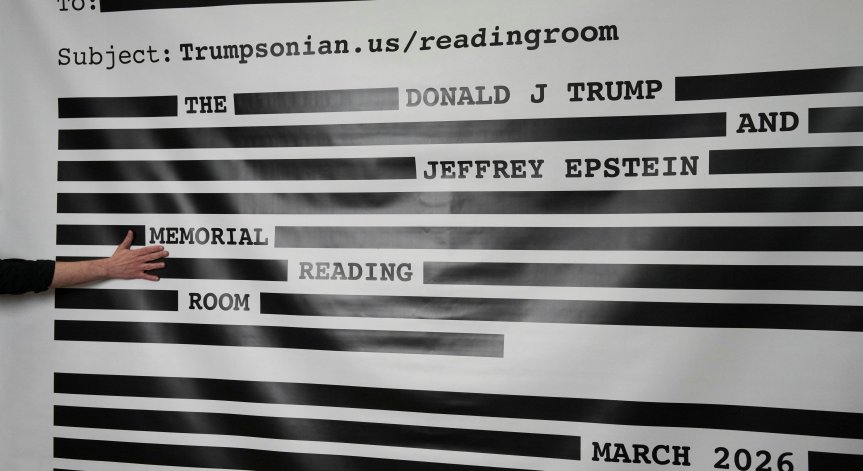 To:
Subject: Trumpsonian.us/readingroom
THE DONALD J TRUMP
AND
JEFFREY EPSTEIN
MEMORIAL
READING
ROOM
MARCH 2026